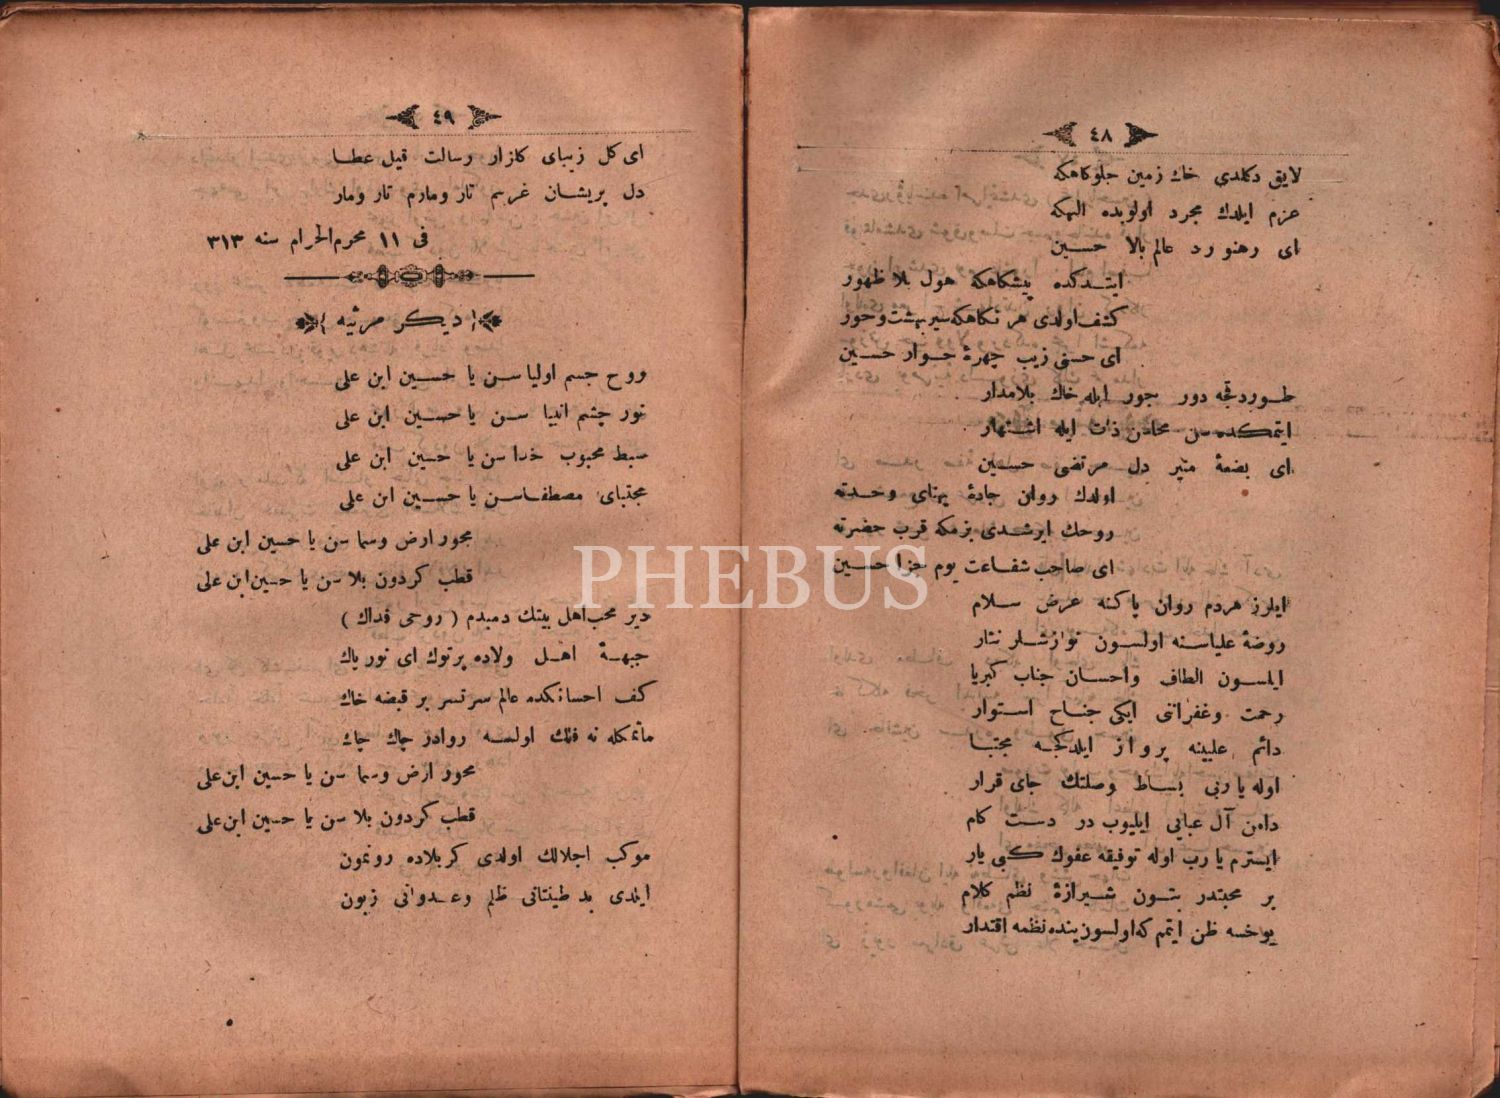 ٤٨
لايق دكلدي خاك زمين جلوكاهكه
عزم ايلدك مجرد اولوبده الهكه
اى رهنورد عالم بالا حسين
ايتدكده پيشكاهكه هول بلا ظهور
كشف اولدى هر نكاهكه سير بهشت وحور
اى حسنى زيب چهرهٔ حوار حسين
طوردقجه دور جور ايله خاك بلامدار
ايتمكده سن محاسن ذات ايله اشتهار
اى بضعهٔ منير دل مرتضى حسين
اولدك روان جادهٔ پهناى وحدته
روحك ايرشدى بزمكه قرب حضرته
اى صاحب شفاعت يوم جزا حسين
ايلرز هردم روان پاكنه عرض سلام
روضهٔ علياسنه اولسون نوازشلر نثار
ايلسون الطاف واحسان جناب كبريا
رحمت وغفرانى ايكى جناح استوار
دائم علينه پرواز ايلدكجه مجتبا
اوله يا ربى بساط وصلتك جاى قرار
دامن آل عبايى ايليوب در دست كام
ايسترم يا رب اوله توفيقه عفوك كبى يار
بر محبتدر بتون شيرازهٔ نظم كلام
يوخسه ظن ايتم كه اولسون بنده نظمه اقتدار
٤٩
اى كل زيباى كلزار رسالت قيل عطا
دل پريشان غربم تار ومارم تار ومار
فى ١١ محرم الحرام سنه ٣١٣
ديكر مرثيه
روح جسم اوليا سن يا حسين ابن على
نور چشم انبيا سن يا حسين ابن على
سبط محبوب خدا سن يا حسين ابن على
مجتباى مصطفا سن يا حسين ابن على
محور ارض وسما سن يا حسين ابن على
قطب كردون بلا سن يا حسين ابن على
دير محب اهل بيتك دمبدم ( روحى فداك )
جبههٔ اهل ولاده پرتوك اى نور پاك
كف احسانكده عالم سرتسر بر قبضه خاك
ماتمكله نه فلك اولسه روادر چاك چاك
محور ارض وسما سن يا حسين ابن على
قطب كردون بلا سن يا حسين ابن على
موكب اجلالك اولدى كربلاده رونمون
ايلدى بد طينتانى ظلم وعدوانى زبون
PHEBUS